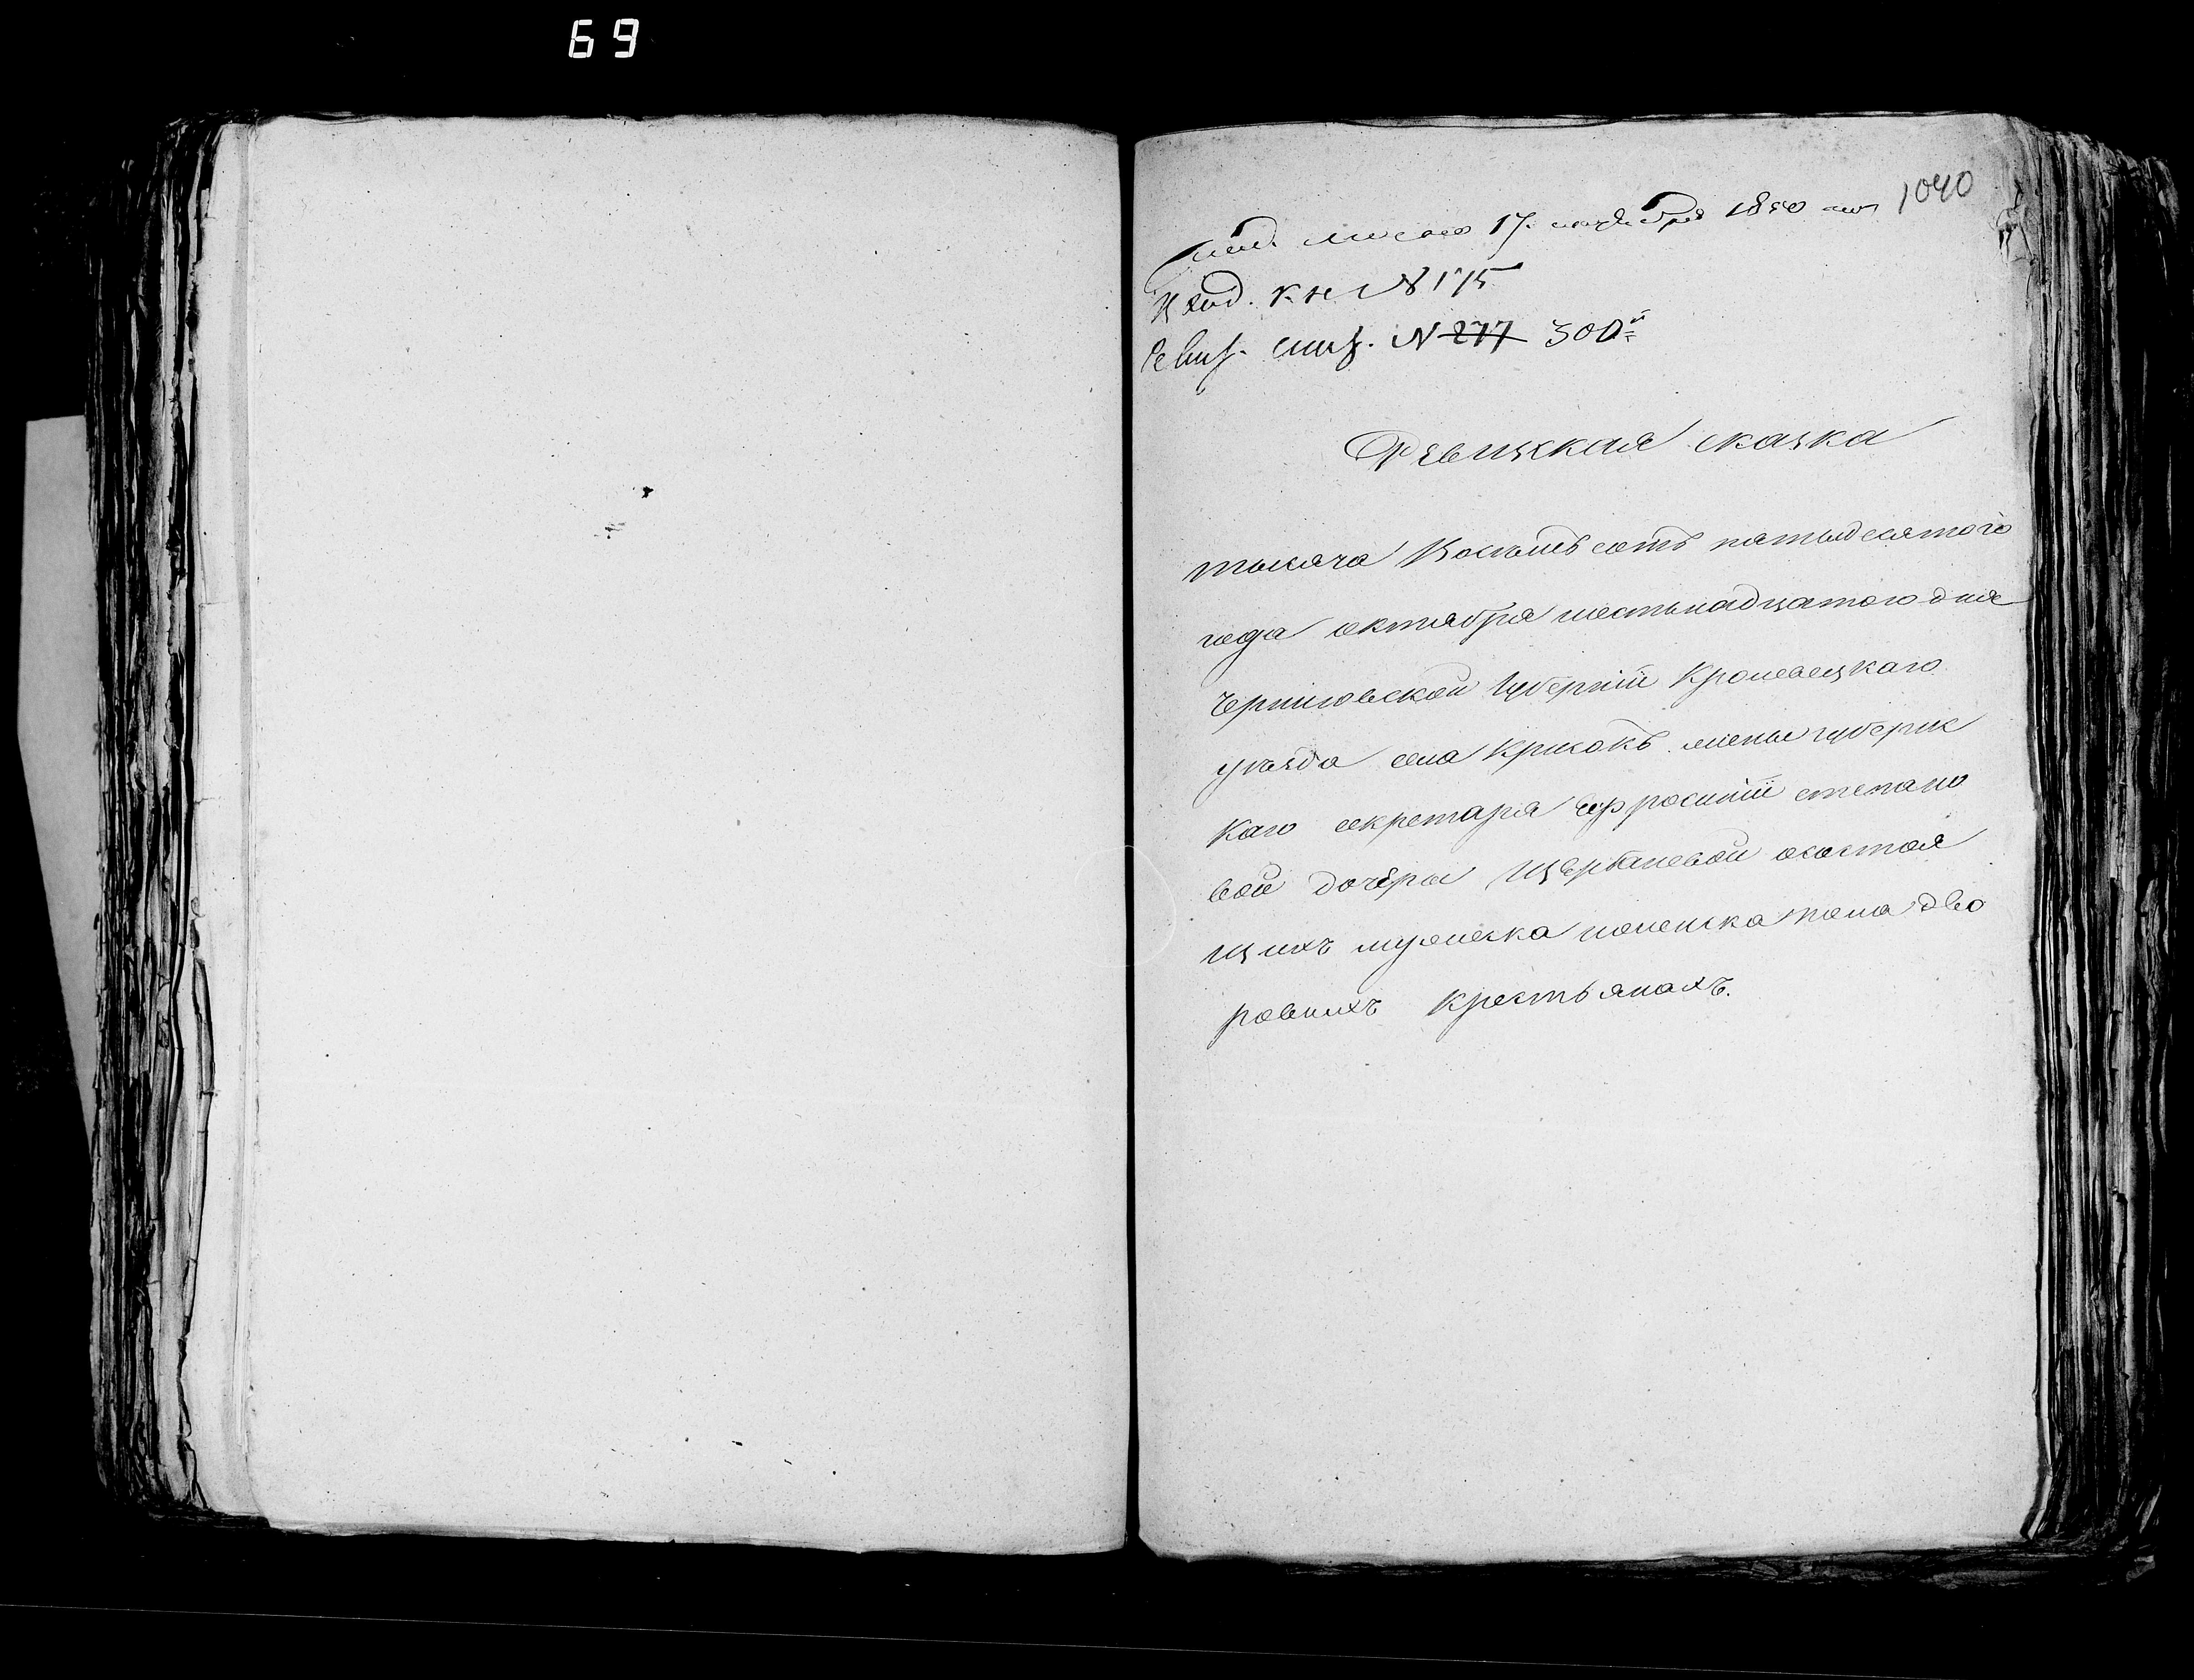 69
1040
17. ноября 1850
Исход. кн № 175
Ревиз. № 277 300й
Ревизская сказка
тысяча Восемьсотъ пятьдесятого
года октября шестьнадцатого дня
Черниговской губерніи Кролевецкаго
уѣзда села жены губернс
каго секретаря Ефросиніи степано
вой дочери Щербаневой осостоя
щихъ мужеска ипола дво
ровыхъ Крестьянахъ.